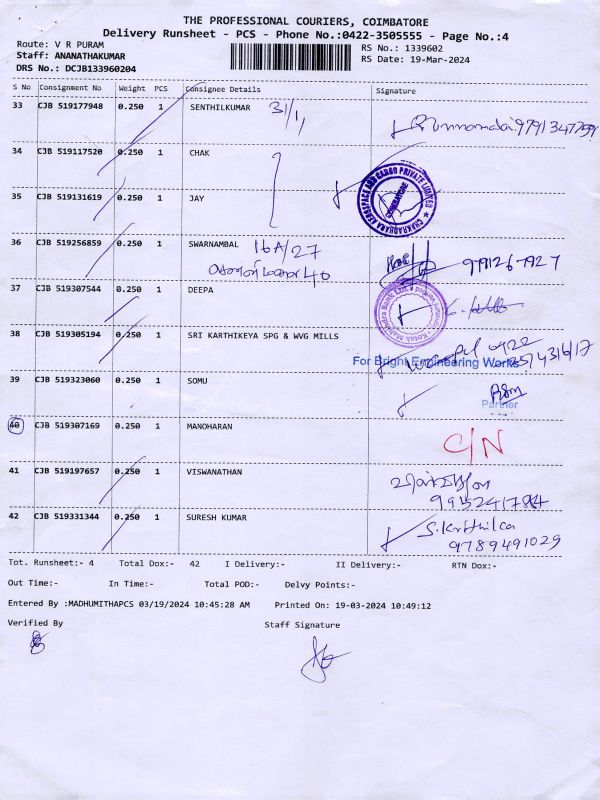 THE PROFESSIONAL COURIERS, COIMBATORE
Delivery Runsheet - PCS - Phone No.:0422-3505555 - Page No.:4
Route: V R PURAM
Staff: ANANATHAKUMAR
DRS No.: DCJB133960204
RS No.: 1339602
RS Date: 19-Mar-2024
S No Consignment No Weight PCS Consignee Details Signature
33 CJB 519177948 0.250 1 SENTHILKUMAR 31/1,
34 CJB 519117520 0.250 1 CHAK
35 CJB 519131619 0.250 1 JAY
CHAKRADHARA AEROSPACE AND CARGO PRIVATE LIMITED
COIMBATORE
36 CJB 519256859 0.250 1 SWARNAMBAL 16A/27
40
37 CJB 519307544 0.250 1 DEEPA
Kotak Mahindra Bank Ltd.
38 CJB 519305194 0.250 1 SRI KARTHIKEYA SPG & WVG MILLS
0422
For Bright Engineering Works
39 CJB 519323060 0.250 1 SOMU
Partner
40 CJB 519307169 0.250 1 MANOHARAN C/N
41 CJB 519197657 0.250 1 VISWANATHAN
42 CJB 519331344 0.250 1 SURESH KUMAR
9789491029
Tot. Runsheet:- 4 Total Dox:- 42 I Delivery:- II Delivery:- RTN Dox:-
Out Time:- In Time:- Total POD:- Delvy Points:-
Entered By :MADHUMITHAPCS 03/19/2024 10:45:28 AM Printed On: 19-03-2024 10:49:12
Verified By Staff Signature